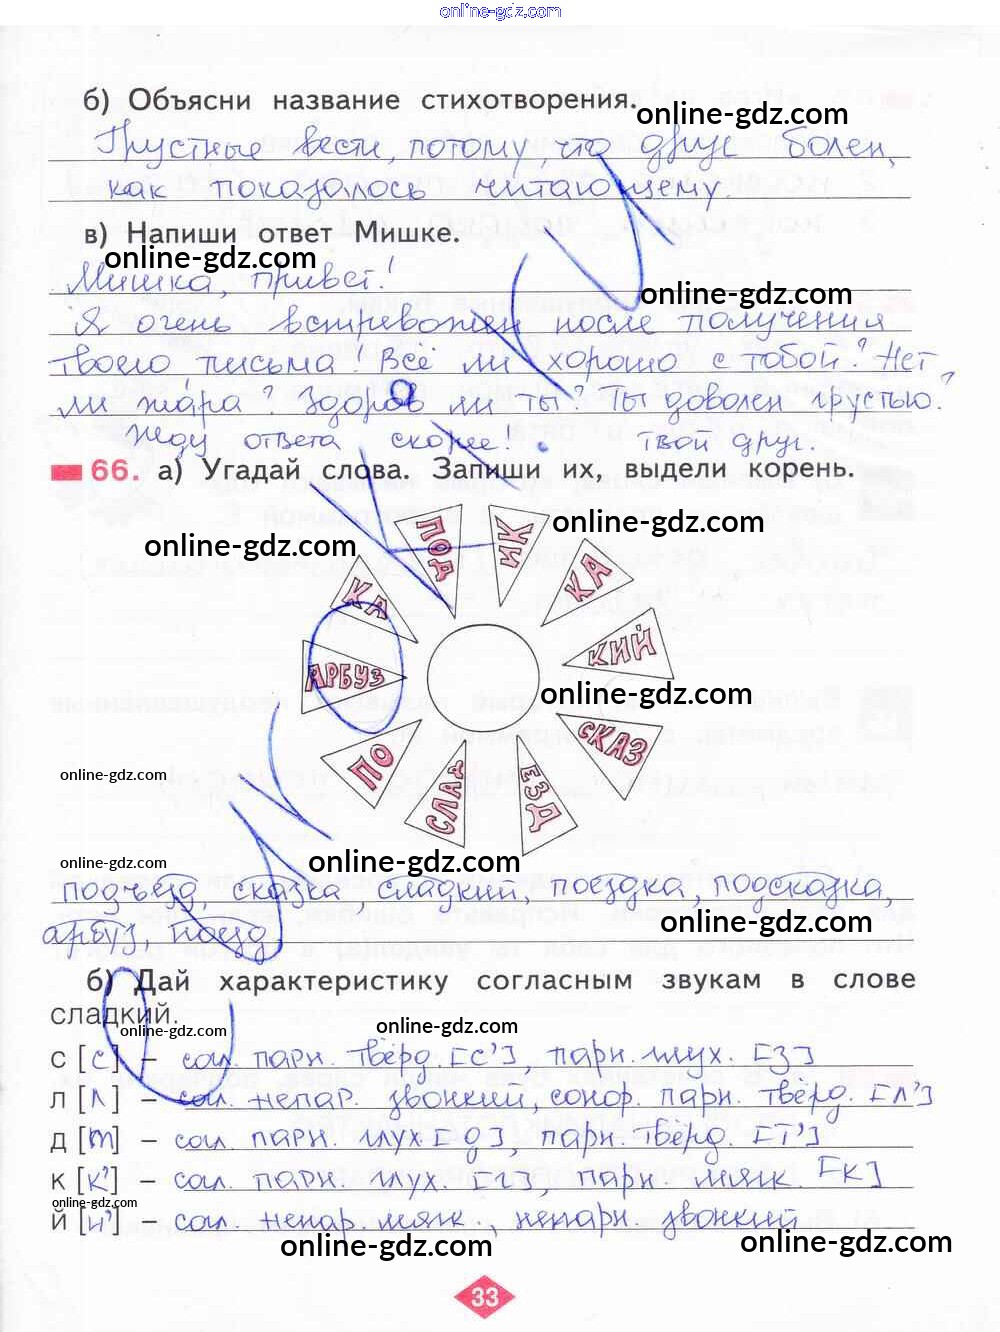 online-gdz.com
б) Объясни название стихотворения.
online-gdz.com
Грустные вести, потому, что друг болен,
как показалось читающему
в) Напиши ответ Мишке.
online-gdz.com
Мишка, привет!
online-gdz.com
Я очень встревожен после получения
твоего письма! Всё ли хорошо с тобой? Нет
ли жара? Здоров ли ты? Ты доволен грустью?
Жду ответа скорее! Твой друг.
66. а) Угадай слова. Запиши их, выдели корень.
online-gdz.com
online-gdz.com
ПОД
ИК
КА
КА
КИЙ
АРБУЗ
online-gdz.com
СКАЗ
ПО
online-gdz.com
СЛАД
ЕЗД
online-gdz.com
online-gdz.com
online-gdz.com
подъезд, сказка сладкий, поездка, подсказка,
online-gdz.com
арбуз, поезд
б) Дай характеристику согласным звукам в слове
сладкий.
online-gdz.com
online-gdz.com
с [с] – согл. парн. твёрд. [с'], парн. глух. [з]
л [л] – согл. непар. звонкий, сонор. парн. твёрд. [л']
д [т] – согл. парн. глух [д], парн. твёрд. [т']
к [к'] – согл. парн. глух. [г], парн. мягк. [к]
online-gdz.com
й [й'] – согл. непар. мягк, непарн. звонкий
online-gdz.com
online-gdz.com
33